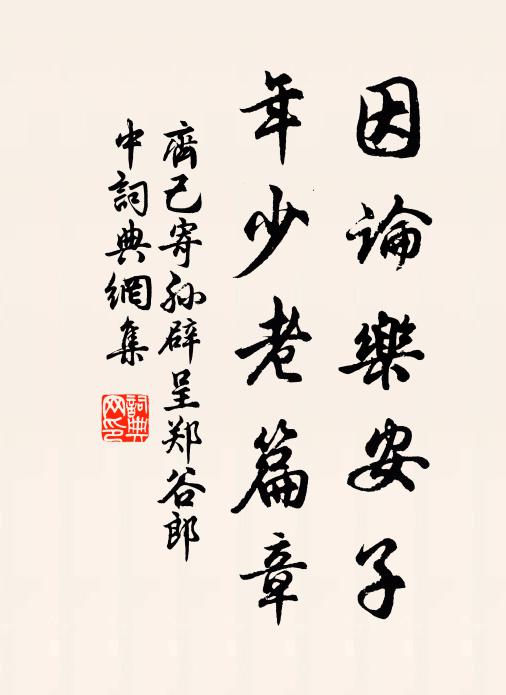 因論樂安子
年少老篇章
齊己寄孙辟呈郑谷郎
中詞典網集
詞典
网印